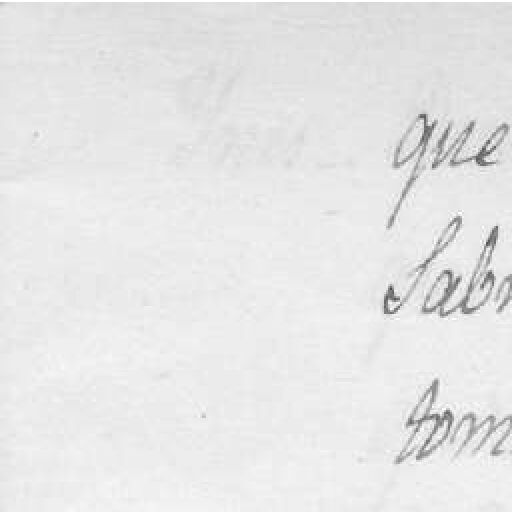 que
Sabr
tom